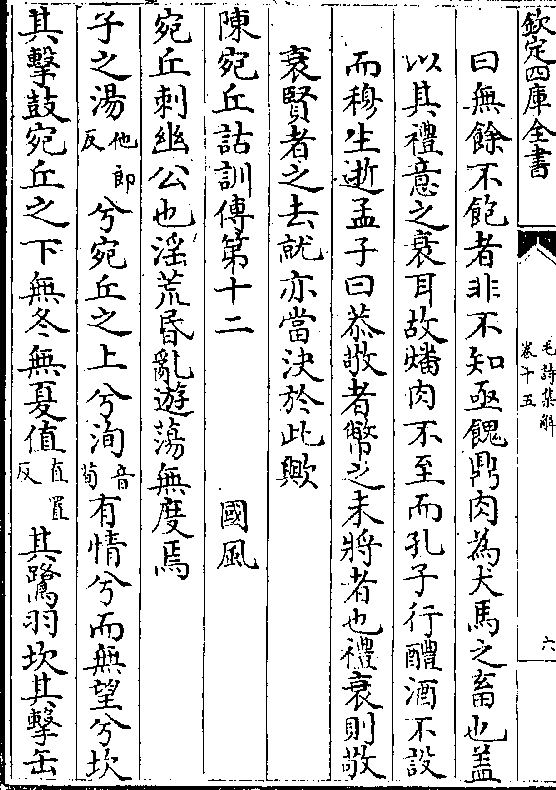 欽定四庫全書
毛詩集解
卷十五
六
曰無餘不飽者非不知亟餽鼎肉為犬馬之畜也蓋
以其禮意之衰耳故燔肉不至而孔子行醴酒不設
而穆生逝孟子曰恭敬者幣之未將者也禮衰則敬
衰賢者之去就亦當決於此歟
陳宛丘詁訓傳第十二 國風
宛丘刺幽公也淫荒昏亂遊蕩無度焉
子之湯他郎反兮宛丘之上兮洵音荀有情兮而無望兮坎
其擊鼓宛丘之下無冬無夏值直置反其鷺羽坎其擊缶